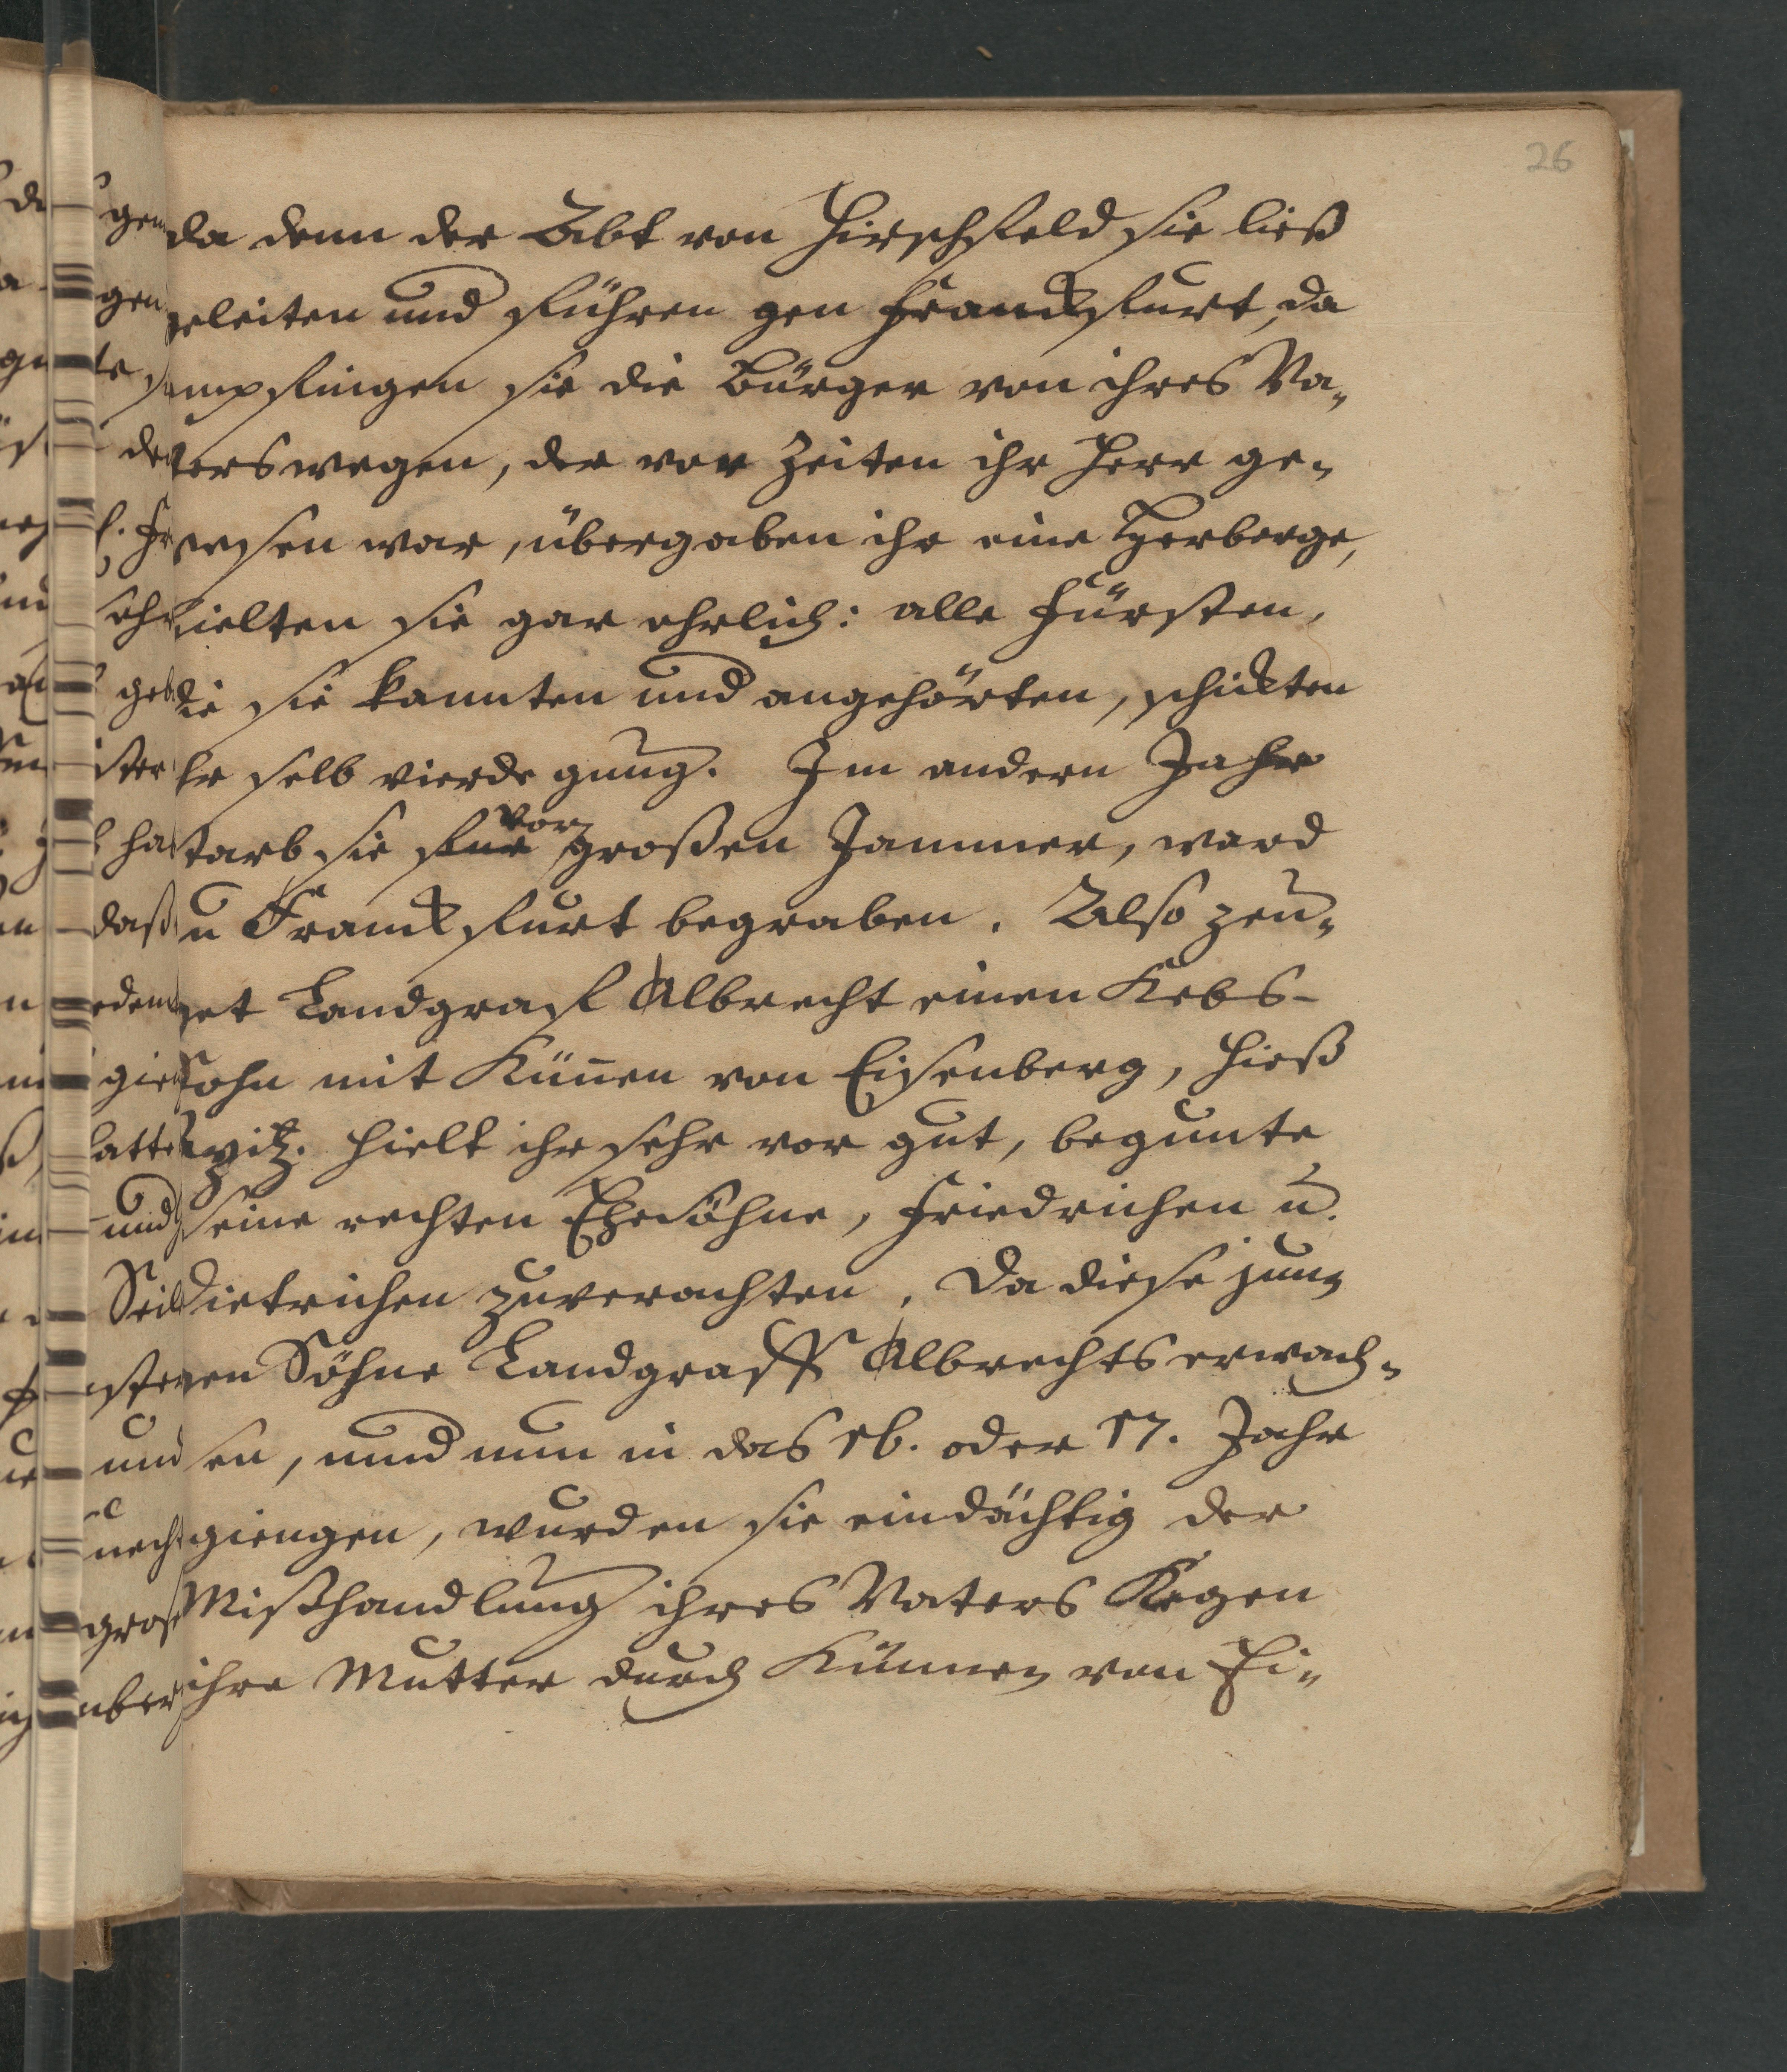 26
da denn der Abt von Hirschfeld sie ließ
geleiten und führen gen Franckfurt, da
empfingen sie die Bürger von ihres Va-
ters wegen, der vor Zeiten ihr Herr ge-
wesen war, übergaben ihr eine Herberge,
hielten sie gar ehrlich: alle Fürsten,
die sie kannten und angehörten, schickten
ihr selb vierde gnug. Im andern Jahr
starb sie vor großen Jammer, ward
zu Franckfurt begraben. Also zeu-
get Landgraf Albrecht einen Kebs-
sohn mit Künen von Eisenberg, hieß
Apitz. hielt ihr sehr vor gut, begunte
seine rechten Ehesöhne, Friedrichen u.
Dietrichen zuverachten. Da diese jun-
gen Söhne Landgraffs Albrechts erwach-
sen, und nun in das 16. oder 17. Jahr
giengen, wurden sie eindächtig der
Mißhandlung ihres Vaters Kegen
ihre Mutter durch Künnen von Ei-